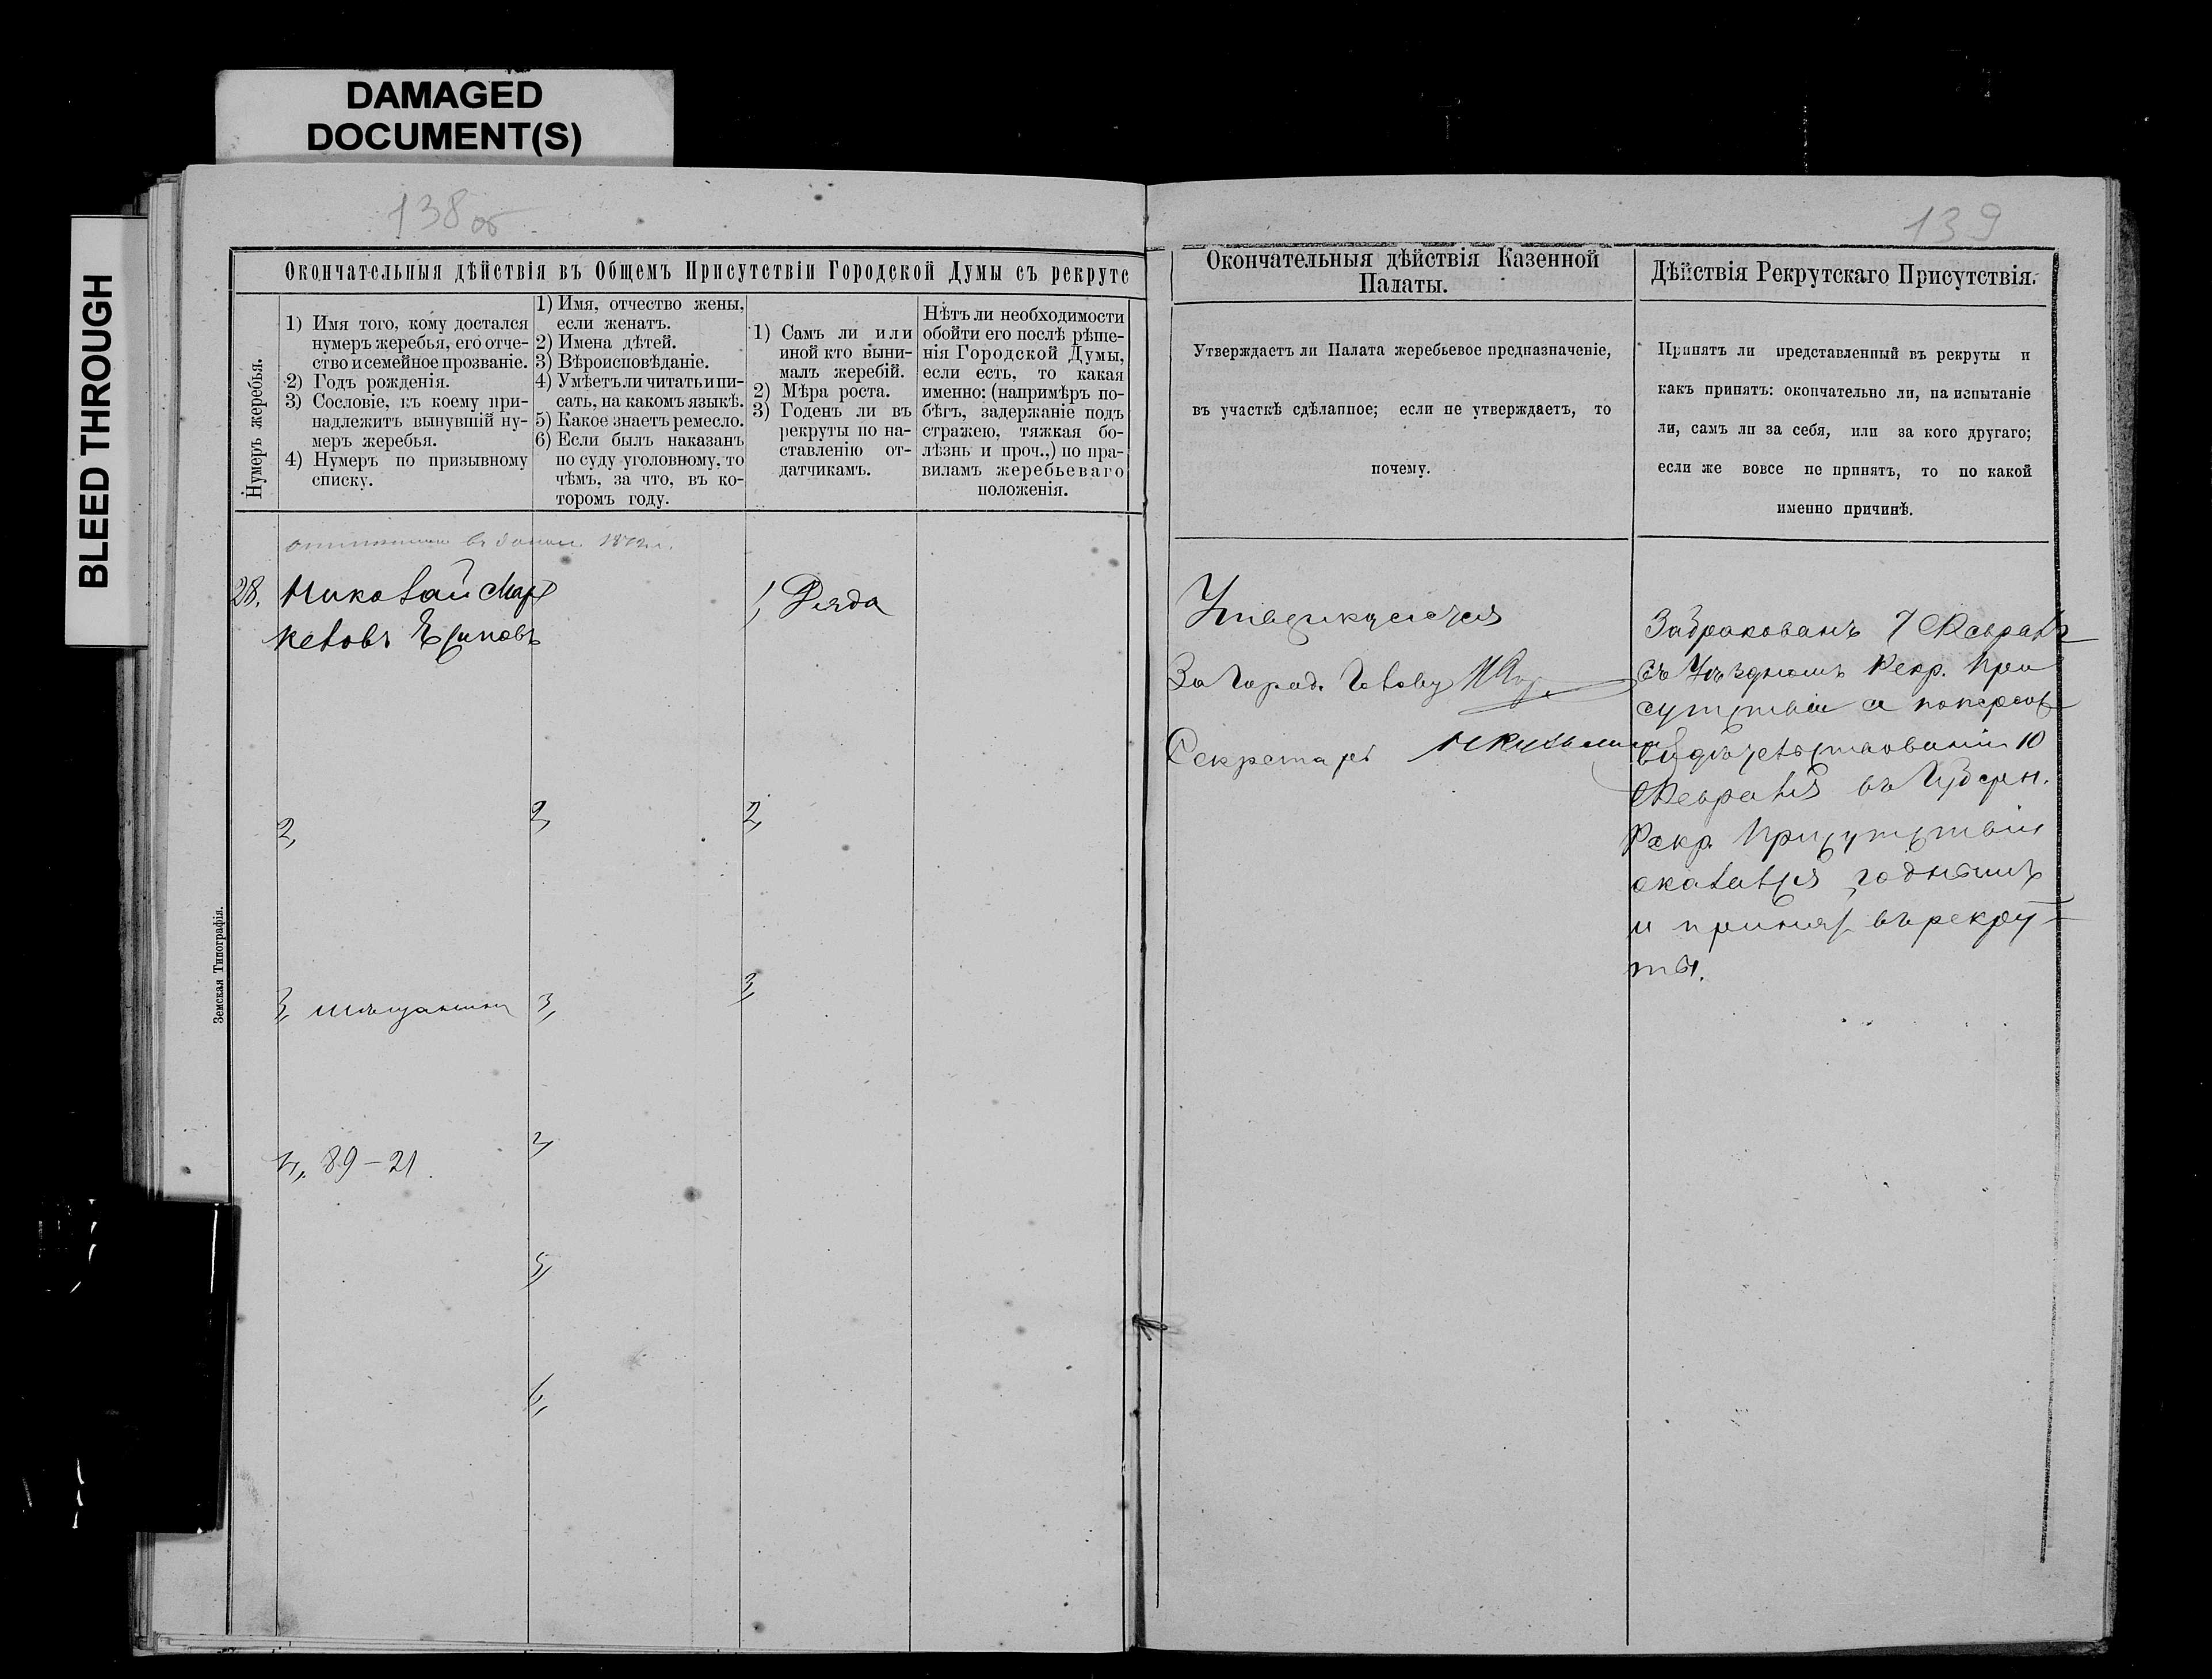 DAMAGED
DOCUMENT(S)
BLEED THROUGH
138 об
139
Окончательныя дѣйствія въ Общемъ Присутствіи Городской Думы съ рекрутс
Нумеръ жеребья.
1) Имя того, кому достался
нумеръ жеребья, его отче-
ство и семейное прозваніе.
2) Годъ рожденія.
3) Сословіе, къ коему при-
надлежитъ вынувшій ну-
меръ жеребья.
4) Нумеръ по призывному
списку.
1) Имя, отчество жены,
если женатъ.
2) Имена дѣтей.
3) Вѣроисповѣданіе.
4) Умѣетъ ли читать и пи-
сать, на какомъ языкѣ.
5) Какое знаетъ ремесло.
6) Если былъ наказанъ
по суду уголовному, то
чѣмъ, за что, въ ко-
торомъ году.
1) Самъ ли или
иной кто выни-
малъ жеребій.
2) Мѣра роста.
3) Годенъ ли въ
рекруты по на-
ставленію от-
датчикамъ.
Нѣтъ ли необходимости
обойти его послѣ рѣше-
нія Городской Думы,
если есть, то какая
именно: (напримѣръ по-
бѣгъ, задержаніе подъ
стражею, тяжкая бо-
лѣзнь и проч.,) по пра-
виламъ жеребьеваго
положенія.
1872 г.
28. Николай Мар
келовъ
2,
3, мѣщанинъ
4, 89-21.
2,
3,
4,
5,
6,
1, Дядя
2,
3,
Земская Типографія.
Окончательныя дѣйствія Казенной
Палаты.
Утверждаетъ ли Палата жеребьевое предназначеніе,
въ участкѣ сдѣланное; если не утверждаетъ, то
почему.
За Город. Голову
Секретарь
Дѣйствія Рекрутскаго Присутствія.
Принятъ ли представленный въ рекруты и
какъ принятъ: окончательно ли, на испытаніе
ли, самъ ли за себя, или за кого другаго;
если же вовсе не принятъ, то по какой
именно причинѣ.
Забракованъ 7 Февраля
въ Уѣздномъ Рекр. При
сутствіи а по переос
видѣтельствованіи 10
Февраля въ Губерн.
Рекр. Присутствіи
оказался годнымъ
и принятъ въ рекру-
ты.